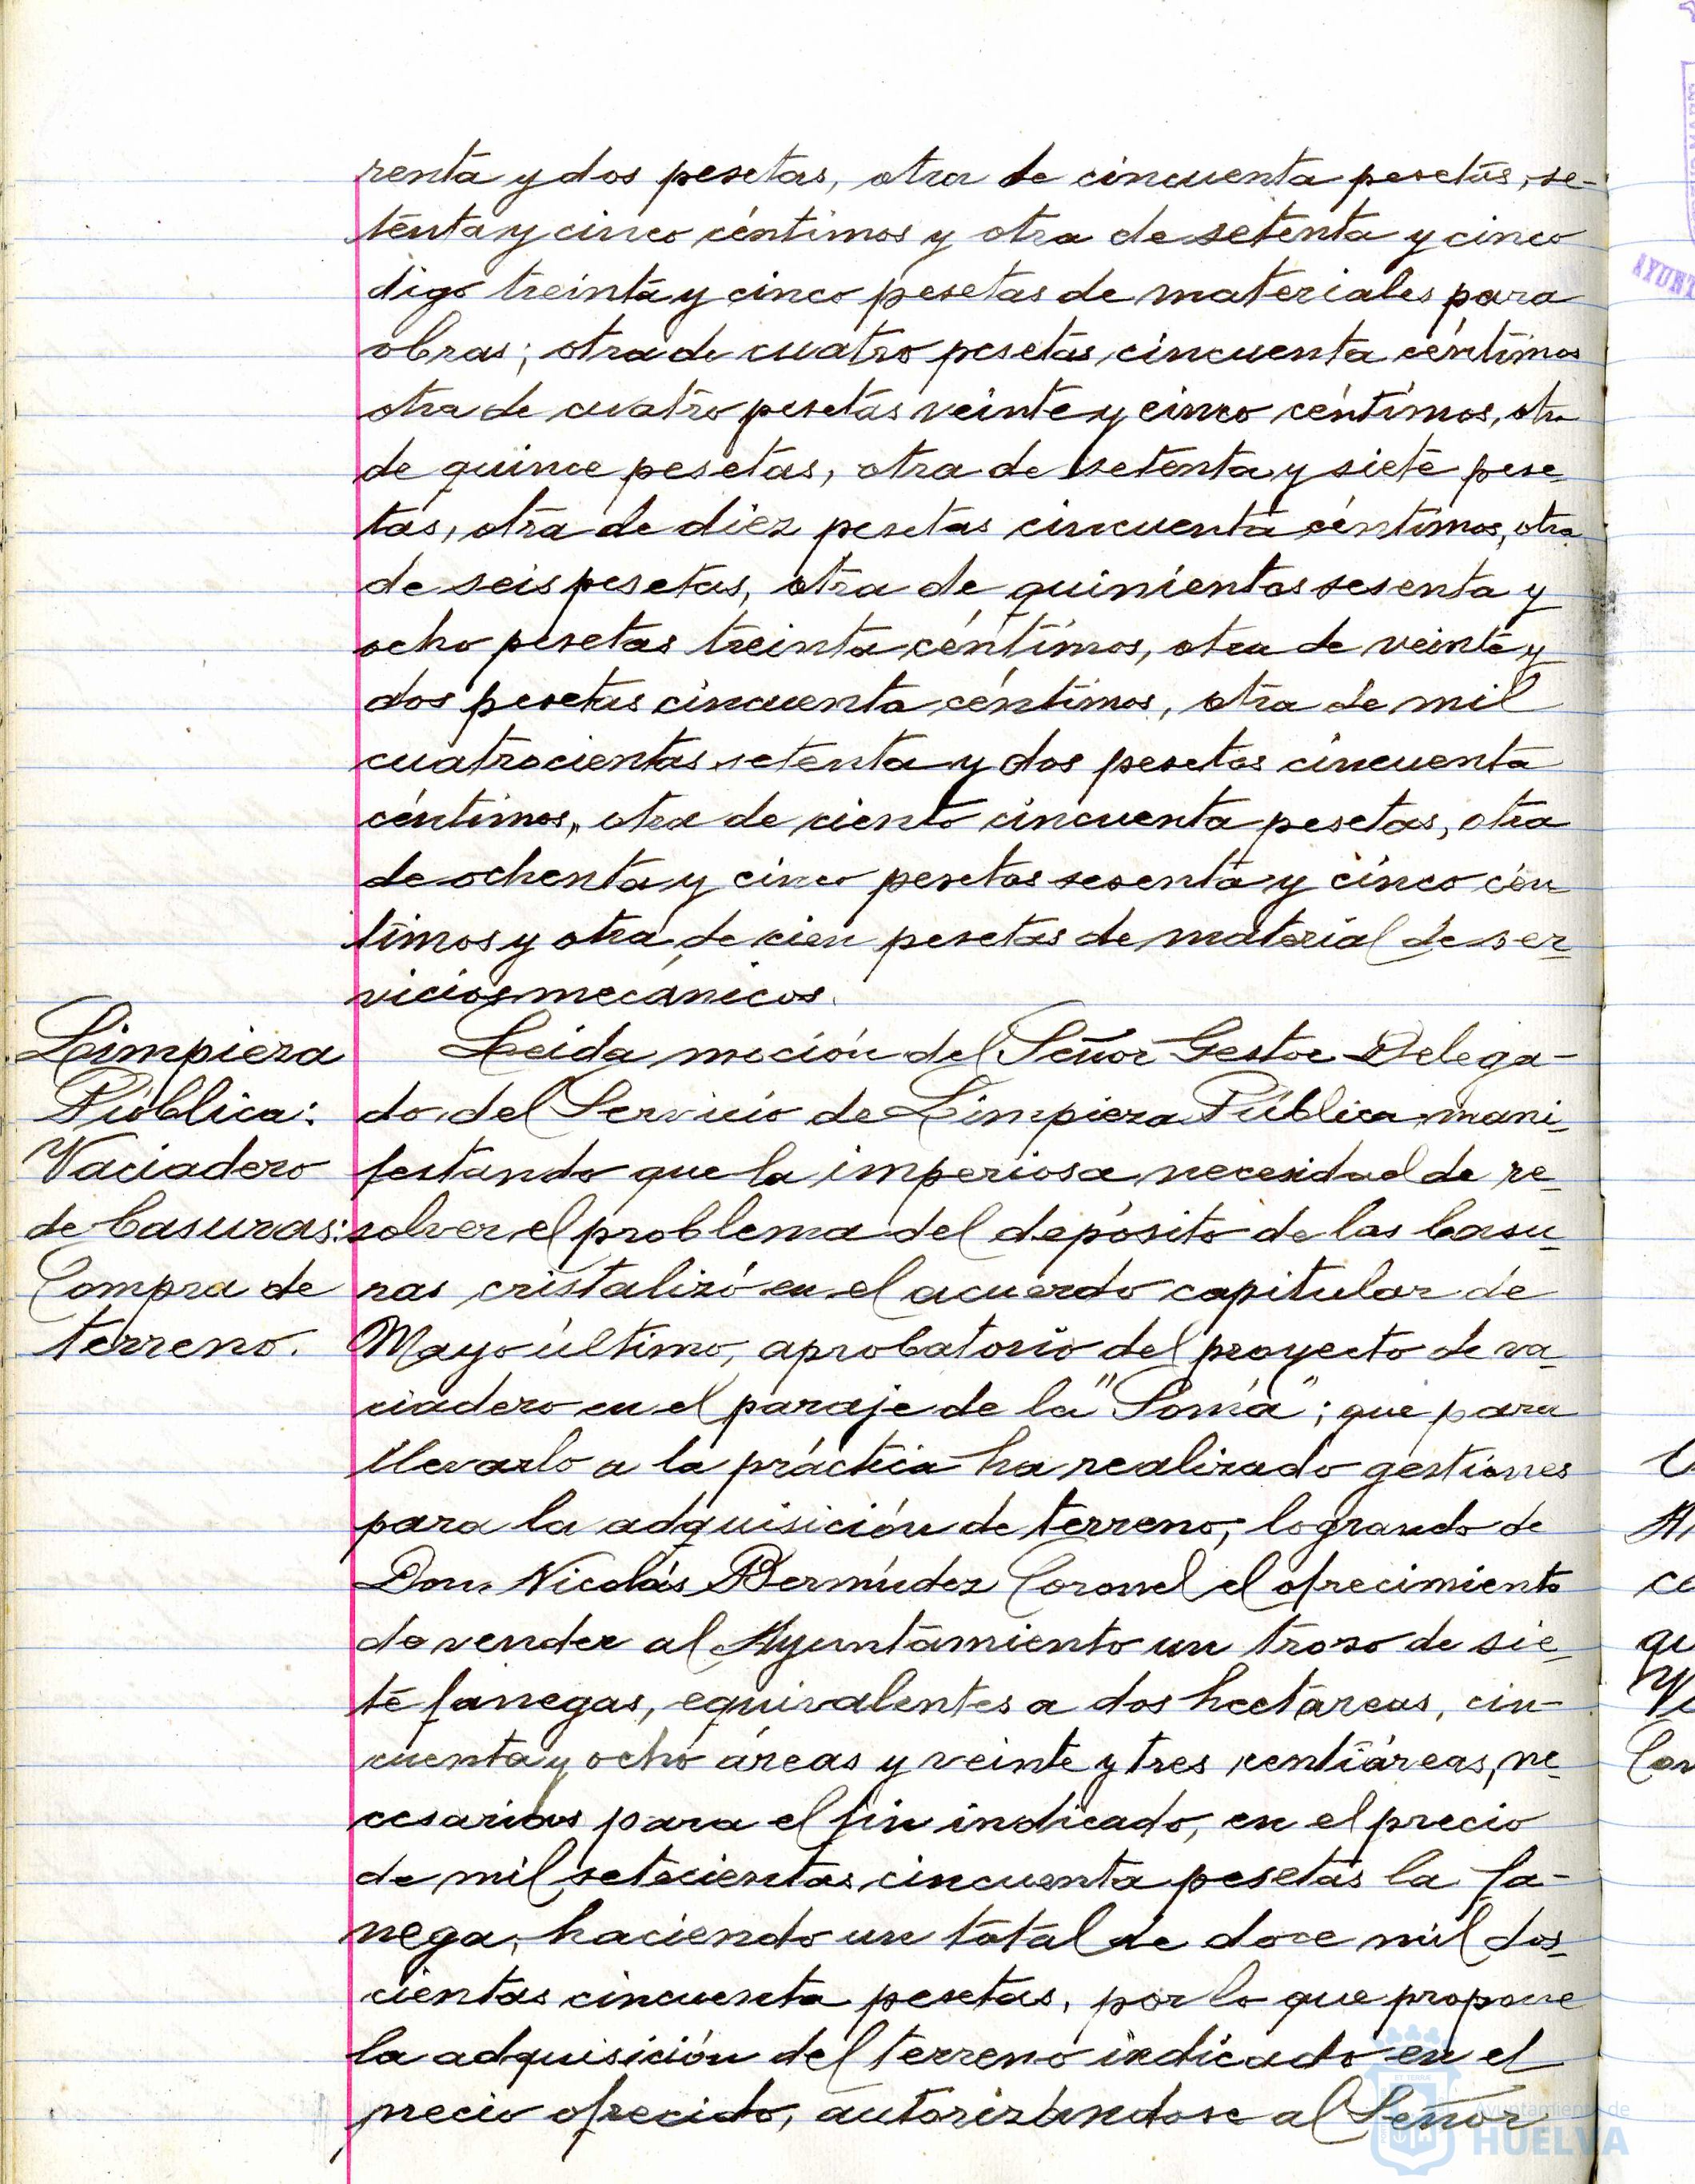 renta y dos pesetas, otra de cincuenta pesetas, se-
tenta y cinco céntimos y otra de setenta y cinco
digo treinta y cinco pesetas de materiales para
obras; otra de cuatro pesetas cincuenta céntimos
otra de cuatro pesetas veinte y cinco céntimos, otra
de quince pesetas, otra de setenta y siete pese-
tas, otra de diez pesetas cincuenta céntimos, otra
de seis pesetas, otra de quinientas sesenta y
ocho pesetas treinta céntimos, otra de veinte y
dos pesetas cincuenta céntimos, otra de mil
cuatrocientas setenta y dos pesetas cincuenta
céntimos, otra de ciento cincuenta pesetas, otra
de ochenta y cinco pesetas sesenta y cinco cén
timos y otra de cien pesetas de material de ser-
vicios mecánicos.
Limpieza
Pública:
Vaciadero
de basuras:
Compra de
terreno.
Leida moción del Señor Gestor Delega-
do del Servicio de Limpieza Pública mani-
festando que la imperiosa necesidad de re-
solver el problema del depósito de las basu-
ras cristalizó en el acuerdo capitular de
Mayo último, aprobatorio del proyecto de va-
ciadero en el paraje de la "Somá"; que para
llevarlo a la práctica ha realizado gestiones
para la adquisición de terreno, logrando de
Don Nicolás Bermúdez Coronel el ofrecimiento
de vender al Ayuntamiento un trozo de sie-
te fanegas, equivalentes a dos hectáreas, cin-
cuenta y ocho áreas y veinte y tres centiáreas, ne-
cesarias para el fin indicado, en el precio
de mil setecientas cincuenta pesetas la fa-
nega, haciendo un total de doce mil dos-
cientas cincuenta pesetas, por lo que propone
la adquisición del terreno indicado en el
precio ofrecido, autorizándose al Señor
Ayuntamiento de
HUELVA